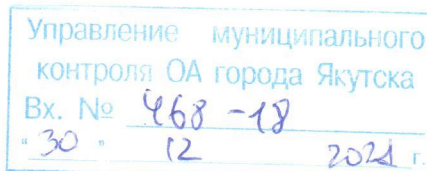 Управление муниципального
контроля ОА города Якутска
Вх. № 468-18
"30" 12 2021 г.